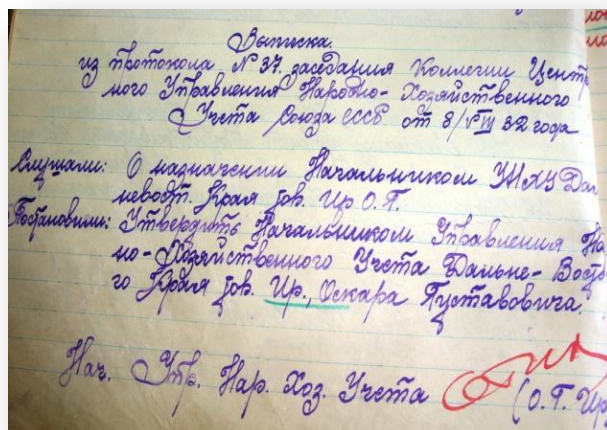 Выписка.
из протокола № 37 заседания Коллегии Центр
ного Управления Народно-Хозяйственного
Учета Союза СССР от 8/VIII 32 года
Слушали: О назначении Начальником УНХУ Даль
невост. Края тов. Ир О.Г.
Постановили: Утвердить Начальником Управления На
но-Хозяйственного Учета Дальне-Вост
го Края тов. Ир., Оскара Густавовича.
Нач. Упр. Нар. Хоз. Учета (О.Г. Ир